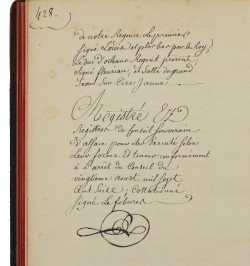 428.
de notre Regence le premier
signé Louis et plus bas par le Roy,
le duc d'orleans Regent present
signé et scellé du grand
Sceau sur Cire Jaune.
Registré Ez
Registres du Conseil souverain
d'alsace pour être executé selon
leur forme et teneur conformement
à L'arrêt du Conseil du
vingtieme aoust mil sept
Cent Seize; Collationné
Signé Le